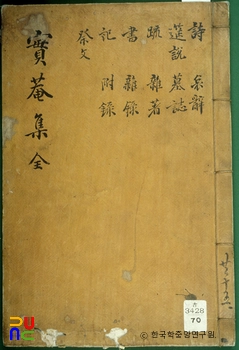 詩 哀辭
筵說 墓誌
疏 雜著
書 雜錄
記 附錄
祭文
實菴集 全
3428
70
ⓒ 한국학중앙연구원